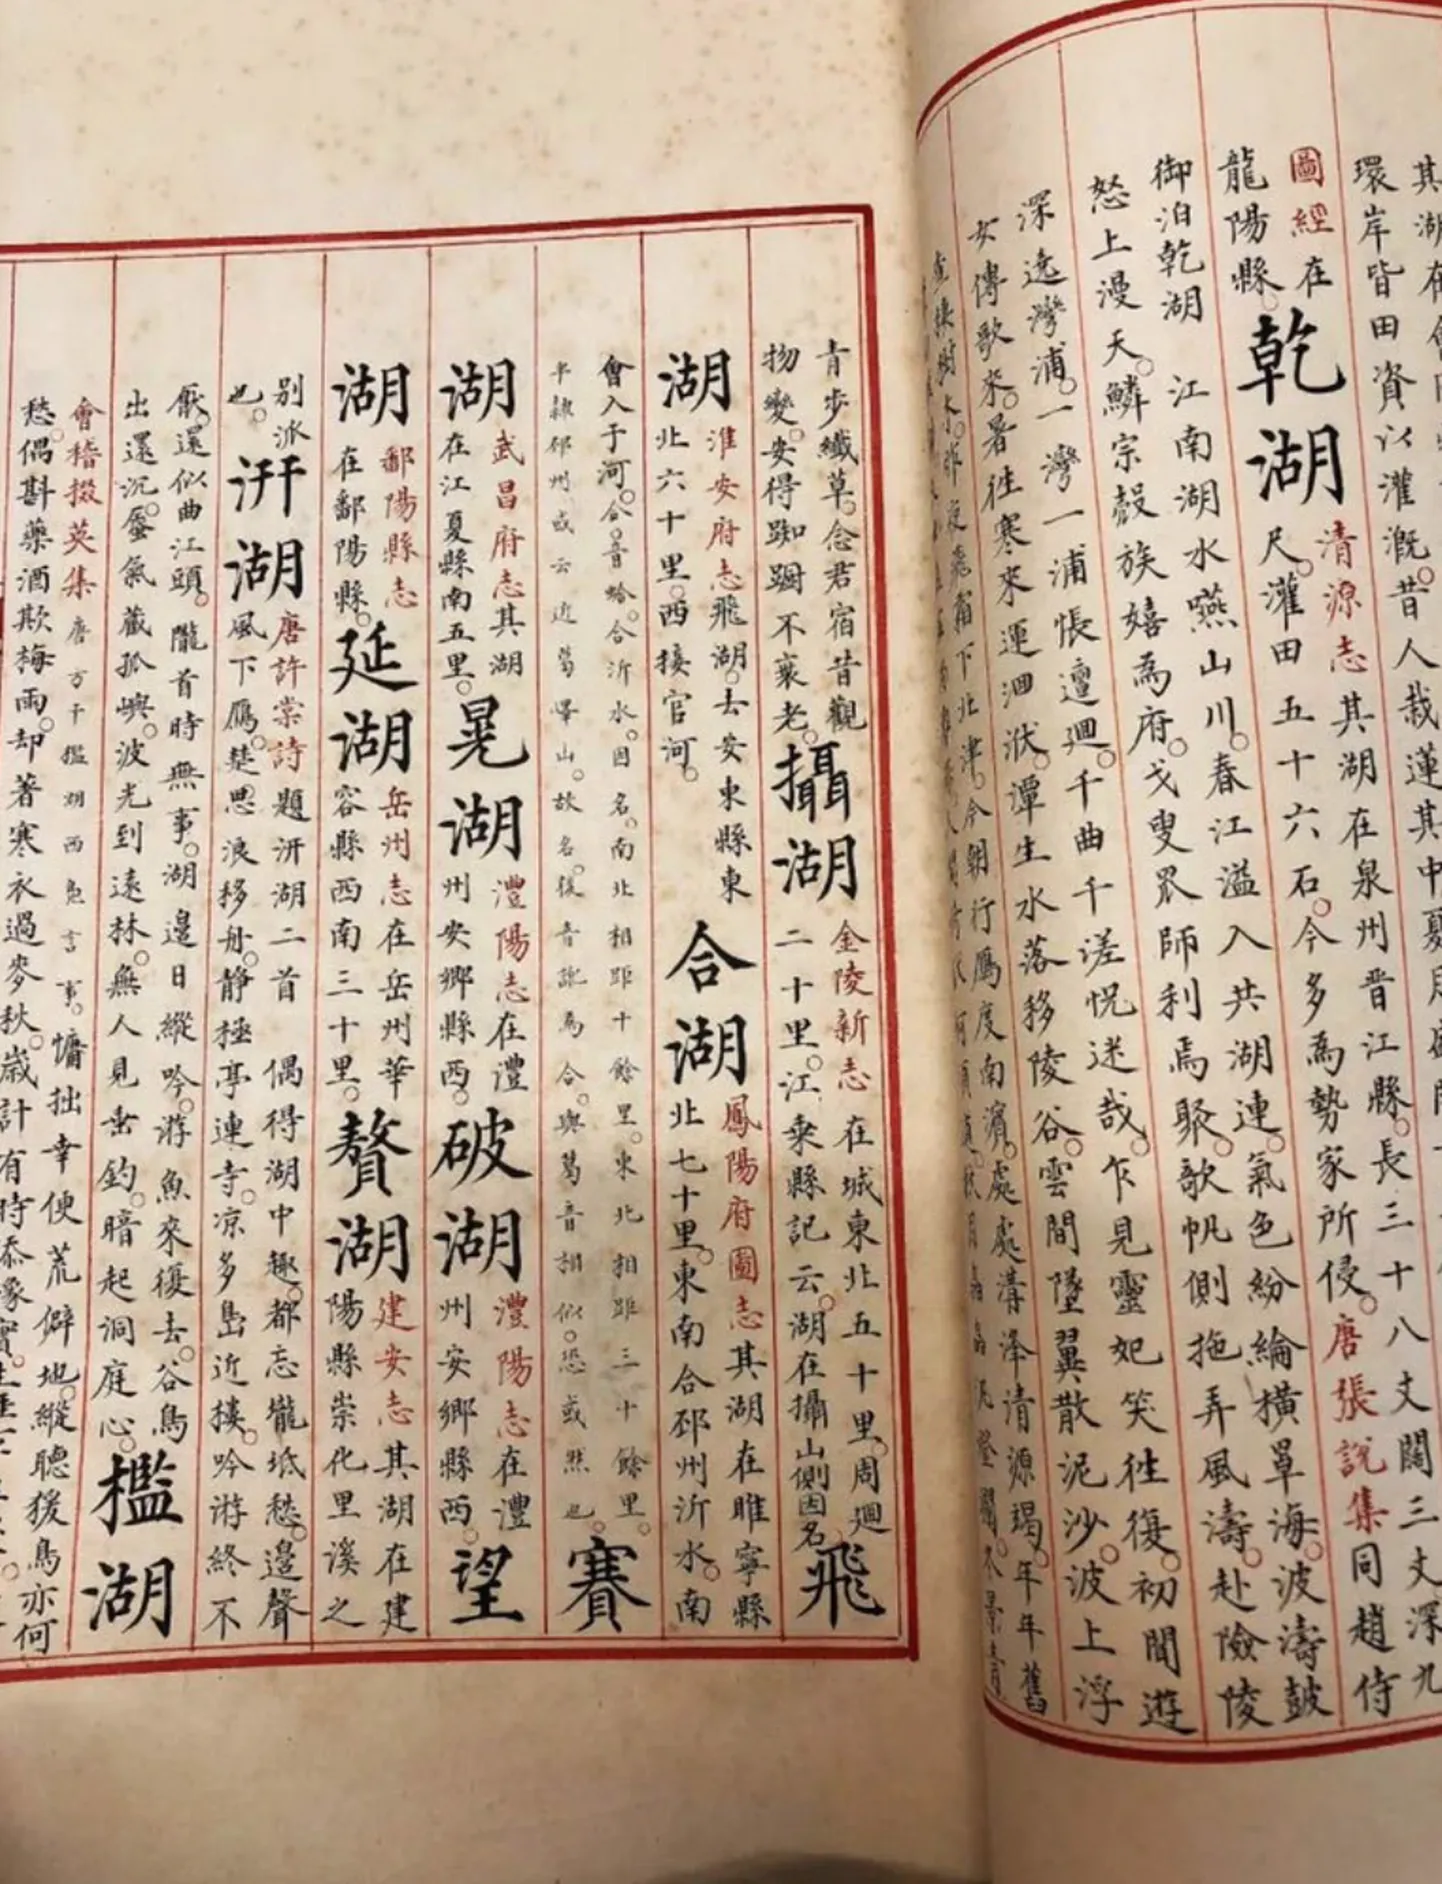 其湖在會
環岸皆田資以灌溉。昔人栽蓮其中夏月盛
圖經在
龍陽縣。
乾湖
清源志其湖在泉州晉江縣。長三十八丈闊三丈深九
尺。灌田五十六石。今多為勢家所侵。唐張說集同趙侍
御泊乾湖 江南湖水嚥山川。春江溢入共湖連。氣色紛綸橫罩海。波濤鼓
怒上漫天。鱗宗殼族嬉為府。弋叟罛師利焉聚。歌帆側拖弄風濤。赴險陵
深逸灣浦。一灣一浦悵邅迴。千曲千溠怳迷哉。乍見靈妃笑往復。初聞遊
女傳歌來。暑往寒來運洄洑。潭生水落移陵谷。雲間墜翼散泥沙。波上浮
查棲樹木。昨夜飛霜下北津。今朝行雁度南濱。處處溝澤清源竭。年年舊
青步纖草。念君宿昔觀
物變。安得踟躕不衰老。
攝湖
金陵新志在城東北五十里。周迴
二十里。江乘縣記云。湖在攝山側因名。
飛
湖
淮安府志飛湖。去安東縣東
北六十里。西接官河。
合湖
鳳陽府圖志其湖在睢寧縣
北七十里。東南合邳州沂水。南
會入于河。合。音蛤。合沂水。因名。南北相距十餘里。東北相距三十餘里。
半隸邳州或云近葛嶧山。故名。後音訛為合。與葛音相似。恐或然也。
賽
湖
武昌府志其湖
在江夏縣南五里。
晃湖
澧陽志在澧
州安鄉縣西。
破湖
澧陽志在澧
州安鄉縣西。
望
湖
鄱陽縣志
在鄱陽縣。
延湖
岳州志在岳州華
容縣西南三十里。
贅湖
建安志其湖在建
陽縣崇化里溪之
別派
也。
汧湖
唐許棠詩題汧湖二首 偶得湖中趣。都忘隴坻愁。邊聲
風下雁。楚思浪移舟。靜極亭連寺。涼多島近樓。吟游終不
厭。還似曲江頭。 隴首時無事。湖邊日縱吟。游魚來復去。谷鳥
出還沉。蜃氣藏孤嶼。波光到遠林。無人見垂釣。暗起洞庭心。
檻湖
會稽掇英集唐方干鑑湖西島言事。慵拙幸便荒僻地。縱聽猨鳥亦何
愁。偶斟藥酒欺梅雨。却著寒衣過麥秋。歲計有時添橡實。生